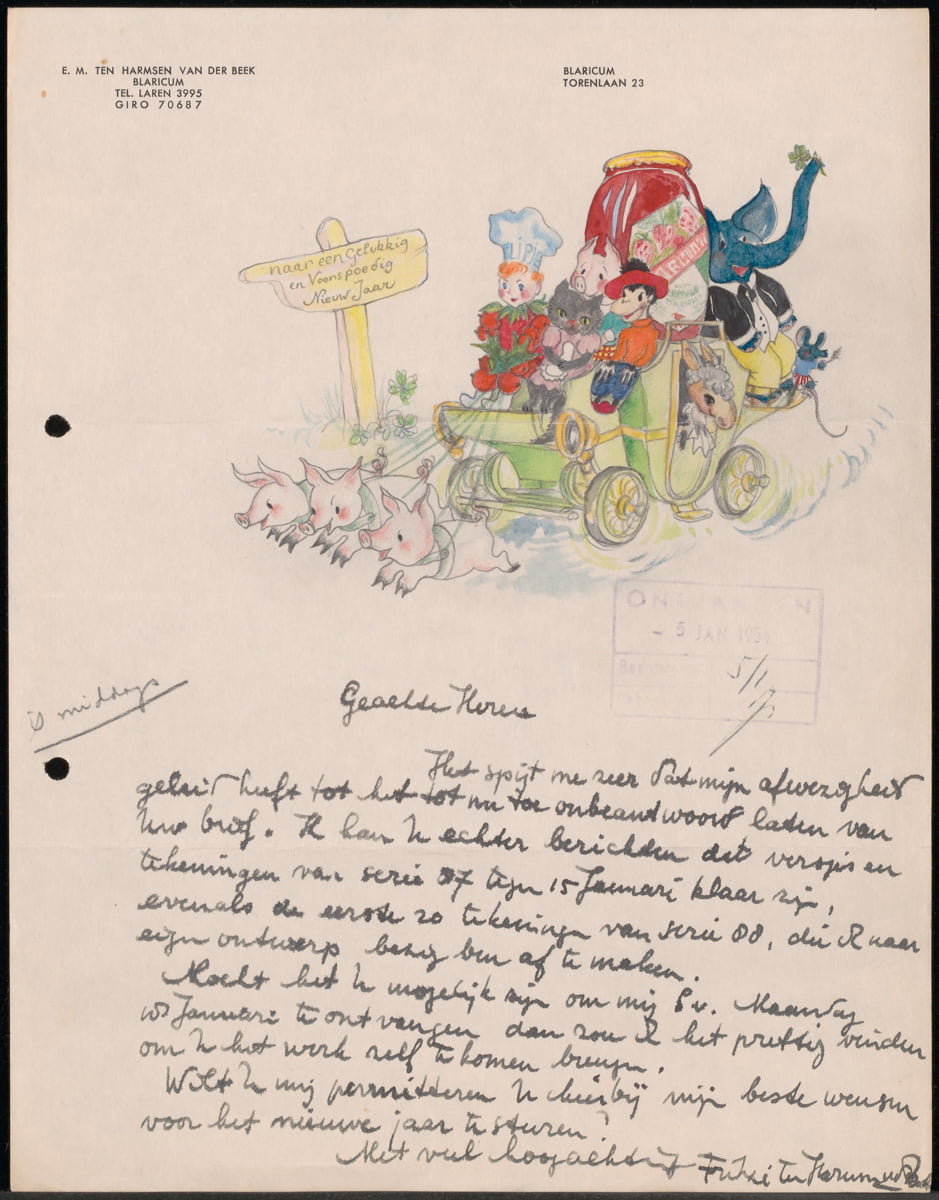 E. M. TEN HARMSEN VAN DER BEEK
BLARICUM
TEL. LAREN 3995
GIRO 70687
BLARICUM
TORENLAAN 23
naar een Gelukkig
en Voorspoedig
Nieuw Jaar
FLIPJE
ONTVANGEN
- 5 JAN 195
5/1
middags
Geachte Heren
Het spijt me zeer dat mijn afwezigheid
geleid heeft tot het tot nu toe onbeantwoord laten van
Uw brief. Ik kan U echter berichten dat versjes en
tekeningen van serie 87 tegen 15 Januari klaar zijn,
evenals de eerste 20 tekeningen van serie 88, die ik naar
eigen ontwerp bezig ben af te maken.
Mocht het U mogelijk zijn om mij s.v. Maandag
Januari te ontvangen dan zou ik het prettig vinden
om U het werk zelf te komen brengen.
Wilt U mij permitteren U hierbij mijn beste wensen
voor het nieuwe jaar te sturen?
Met veel hoogachting Fritzi ten Harmsen vd Beek